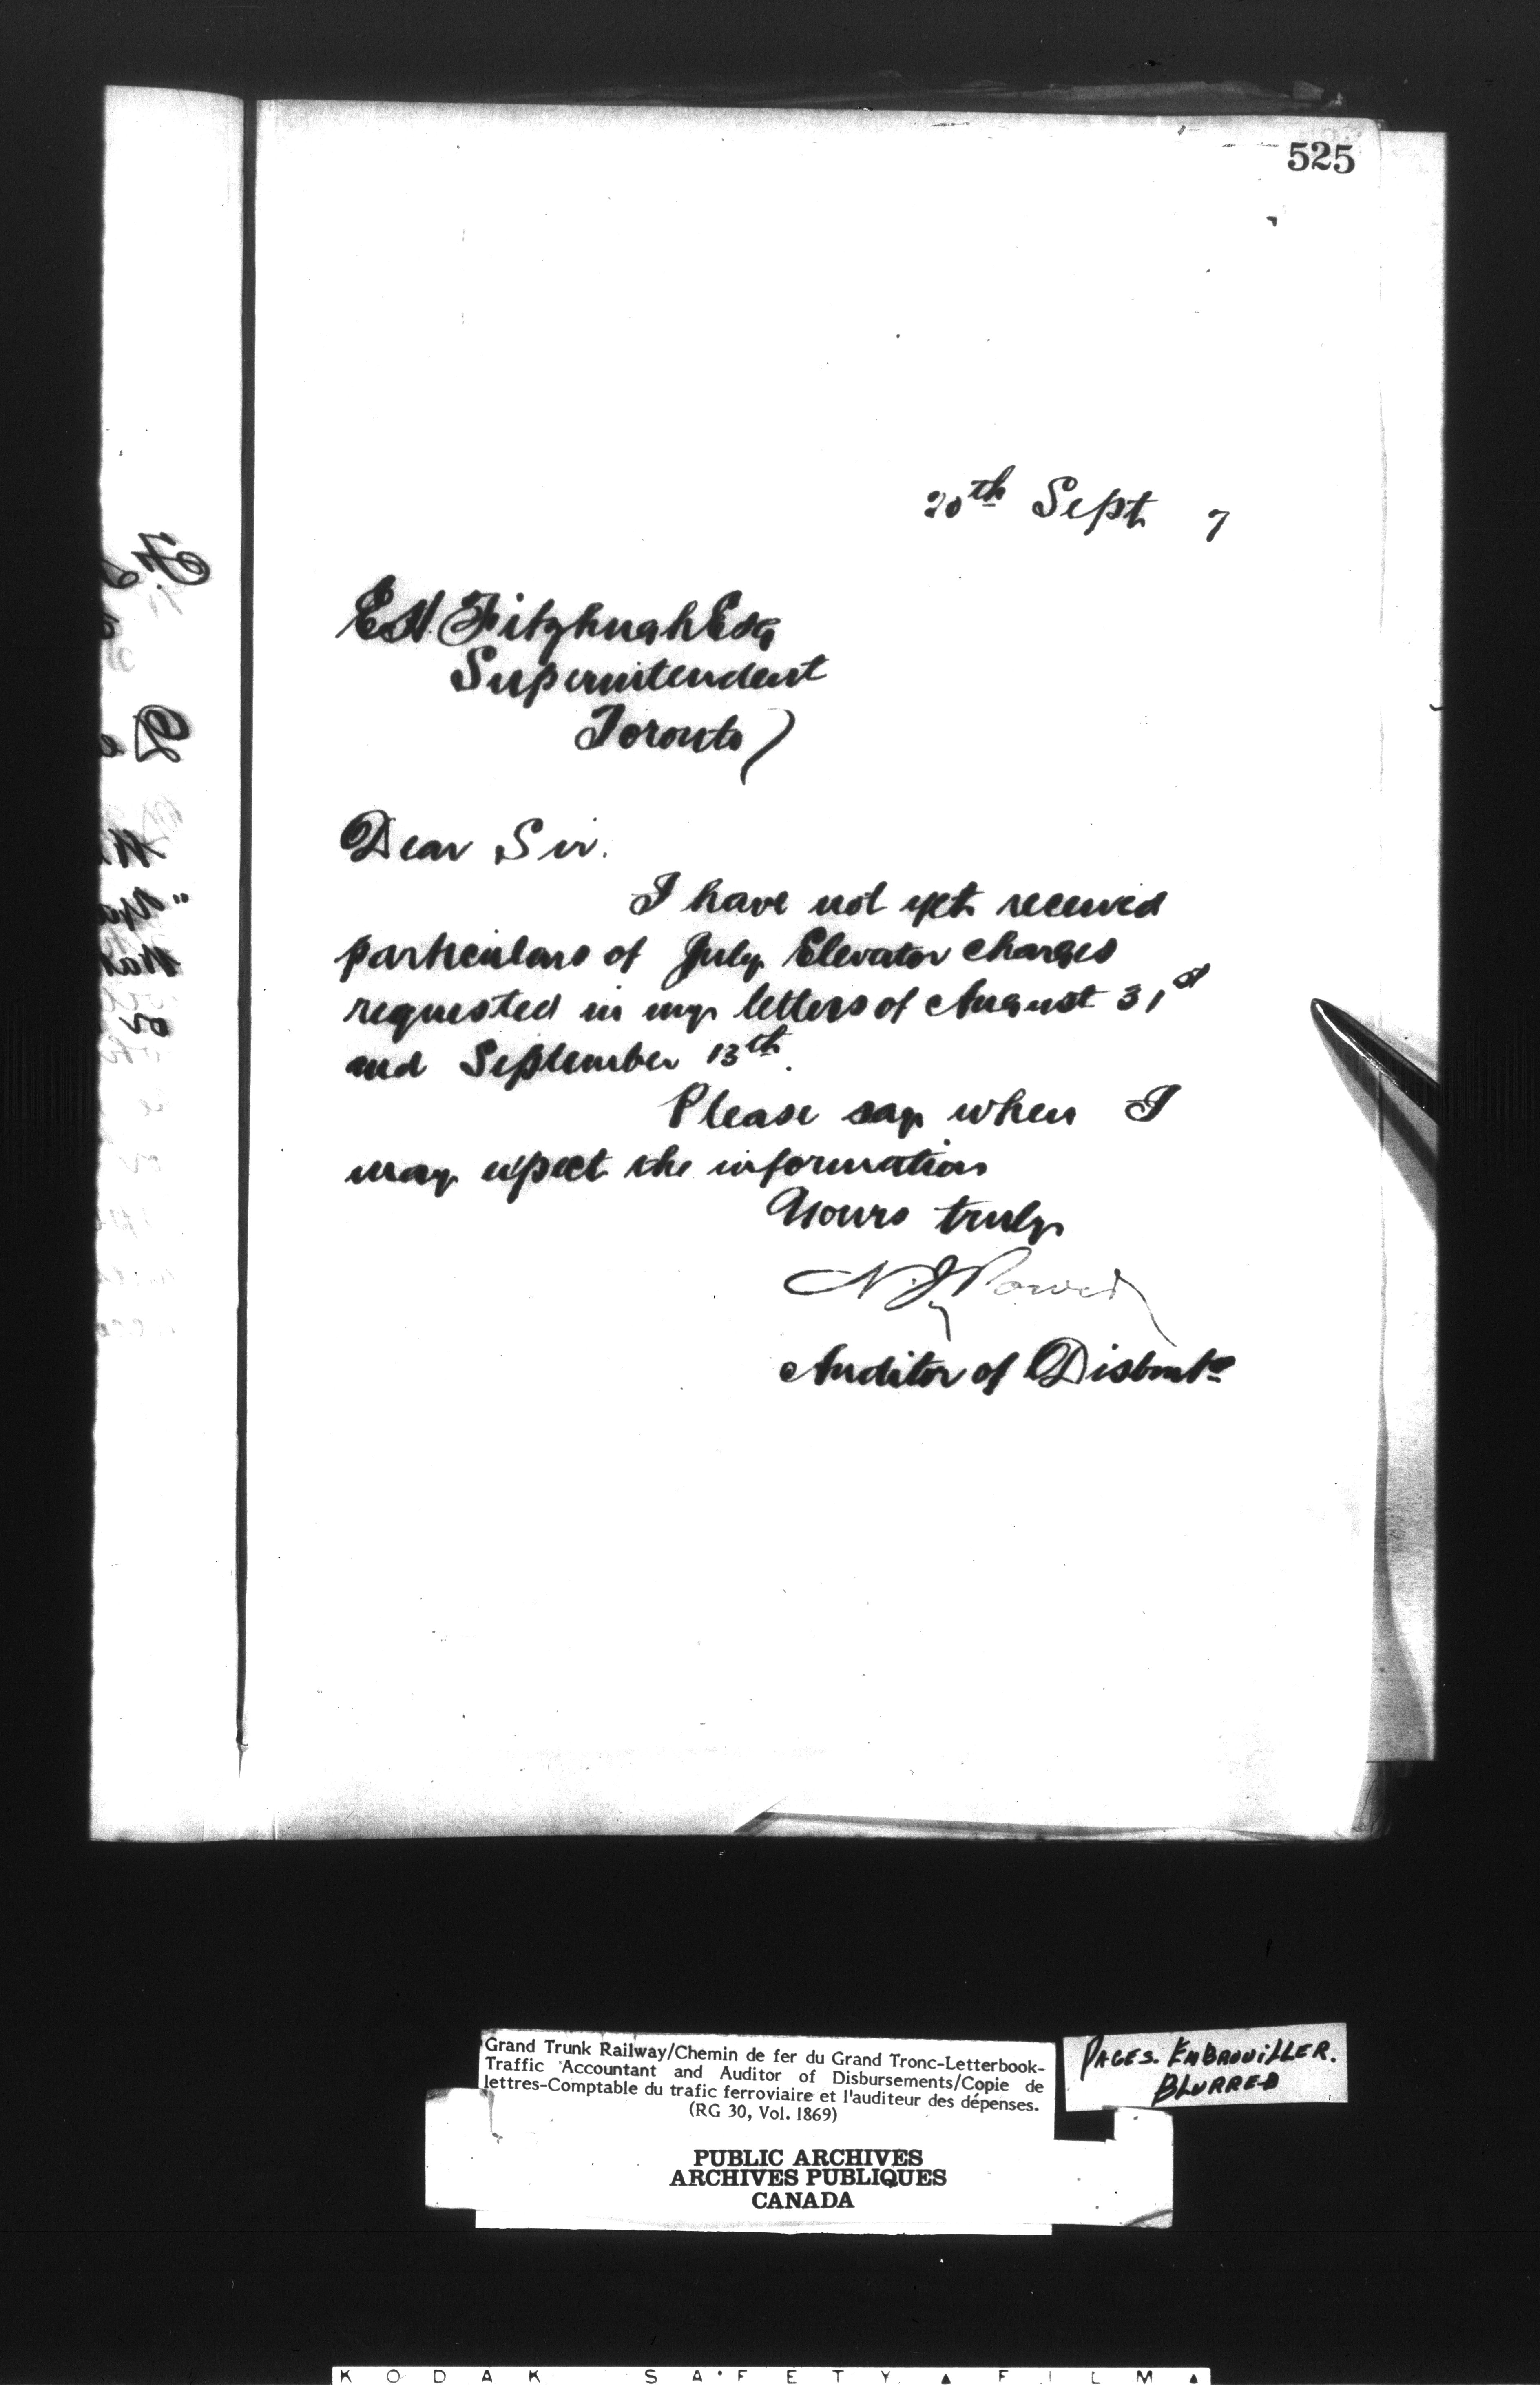 525
20th Sept 7
E.H. Fitzhugh Esq
Superintendent
Toronto
Dear Sir.
I have not yet received
particulars of July Elevator charges
requested in my letters of August 31st
and September 13th.
Please say when I
may expect the information
Yours truly
N.J. Power
Auditor of Disbmts
Grand Trunk Railway/Chemin de fer du Grand Tronc-Letterbook-
Traffic Accountant and Auditor of Disbursements/Copie de
lettres-Comptable du trafic ferroviaire et l'auditeur des dépenses.
(RG 30, Vol. 1869)
PAGES. EMBROUILLER.
BLURRED
PUBLIC ARCHIVES
ARCHIVES PUBLIQUES
CANADA
KODAK SAFETY FILM